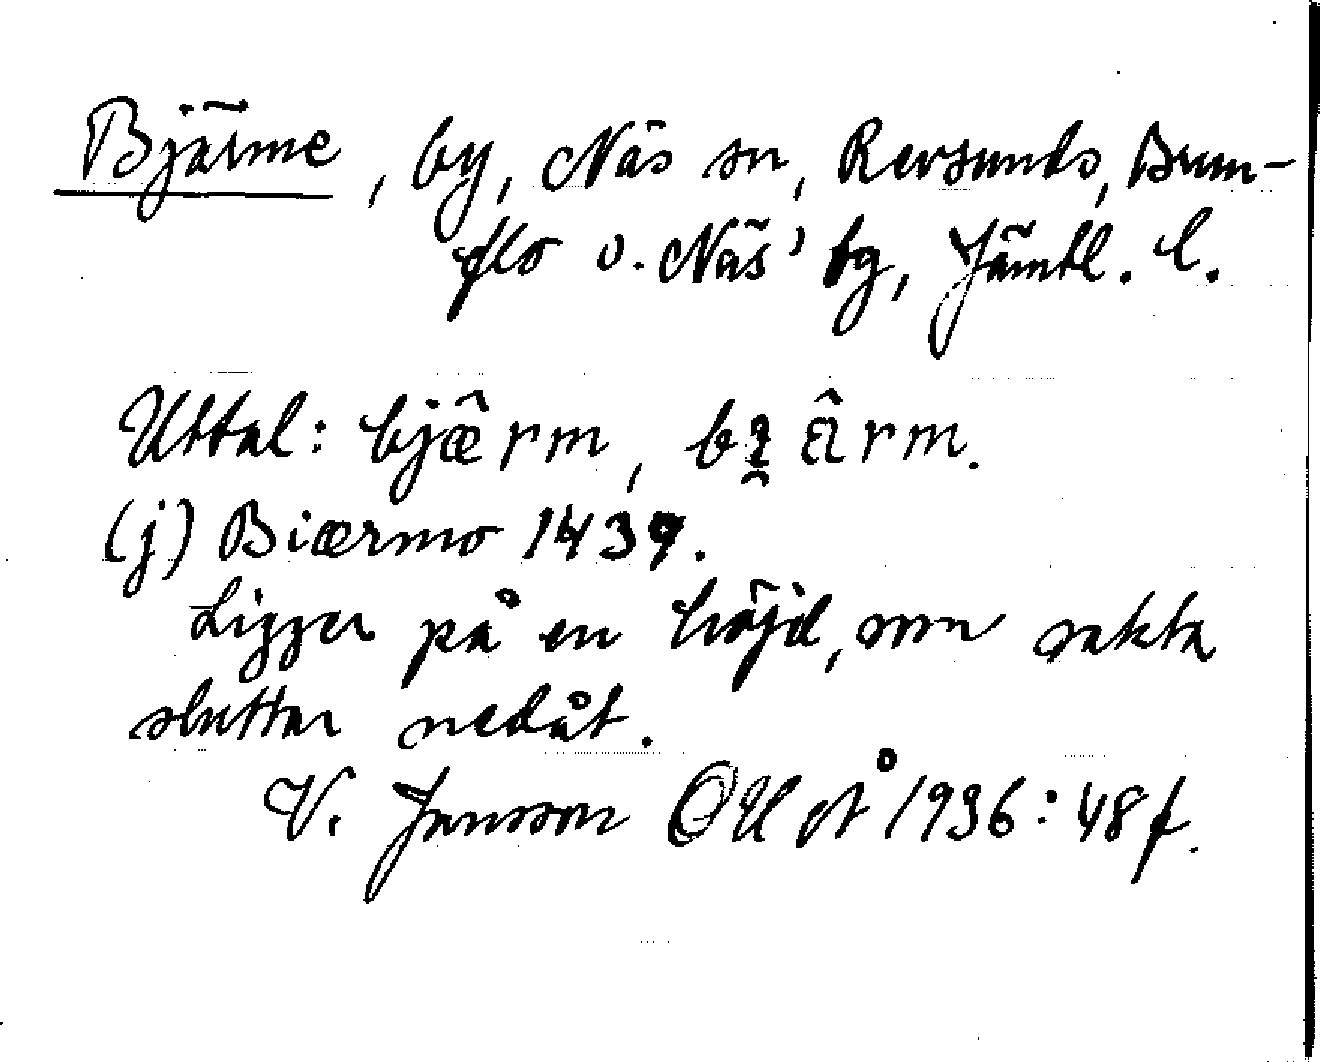 Bjärme, by, Näs sn, Revsunds, Brun-
flo o. Näs' tg, Jämtl. l.
Uttal: bjærm, bi̯ârm.
(j) Biærmo 1439.
Ligger på en höjd, som sakta
sluttar nedåt.
V. Jansson OUÅ 1936: 48 f.